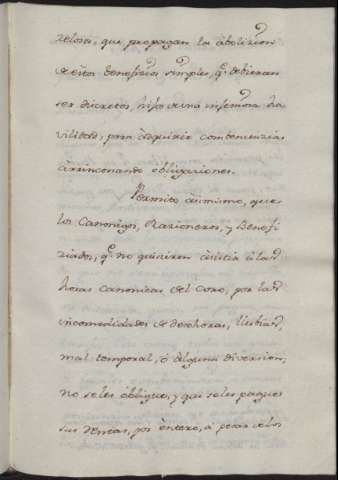 zelosos, que propagan la abolicion
de estos beneficios simples, q.e debieran
ser discretos, hijos de una infamona ha
vilidad, para adquirir combenencias
arrinconando obligaciones.
Permito asimismo, que
los Canonigos, Razioneros, y Benefi
ziados, q.e no quisieren asistir à las
horas canonicas del Coro, por las
incomodidades de deshoras, llubias,
mal temporal, ò alguna diversion,
no seles obligue, y que seles paguen
sus Rentas, por èntero, à pesar de los